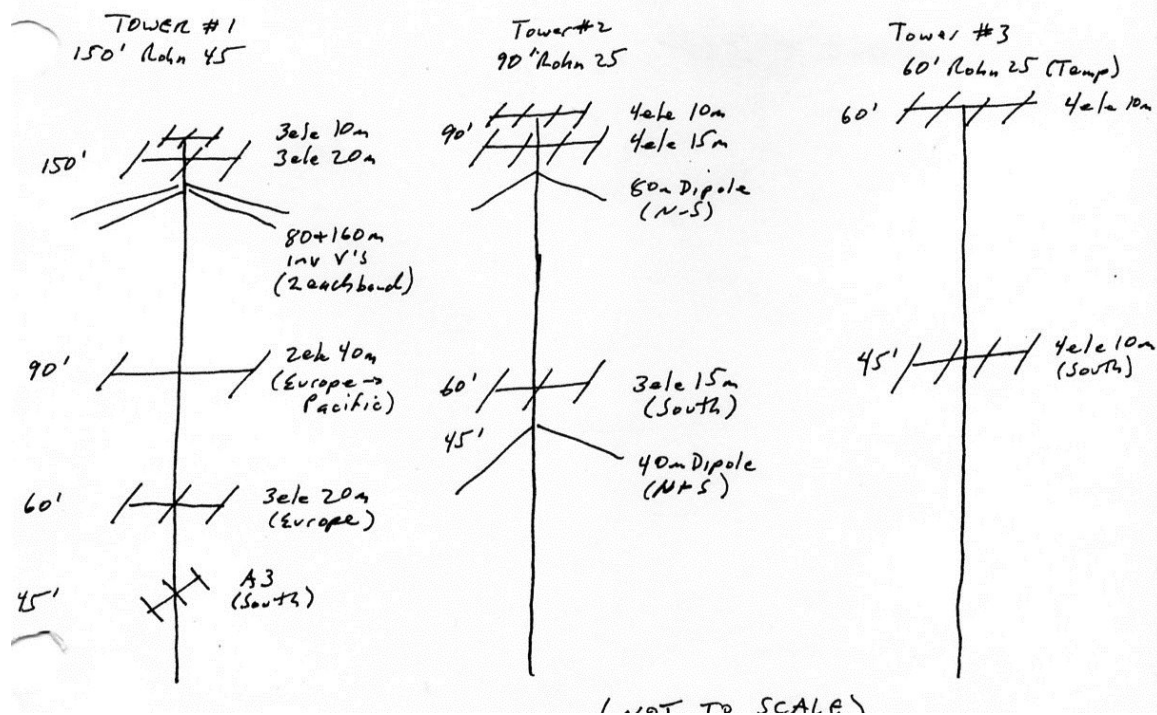 TOWER #1
150' Rohn 45
150'
3ele 10m
3ele 20m
80+160m
inv V's
(2 each band)
90'
2ele 40m
(Europe →
Pacific)
60'
3ele 20m
(Europe)
45'
A3
(South)
Tower #2
90' Rohn 25
90'
4ele 10m
4ele 15m
80m Dipole
(N-S)
60'
3ele 15m
(South)
45'
40m Dipole
(N+S)
Tower #3
60' Rohn 25 (Temp)
60'
4ele 10m
45'
4ele 10m
(South)
(NOT TO SCALE)